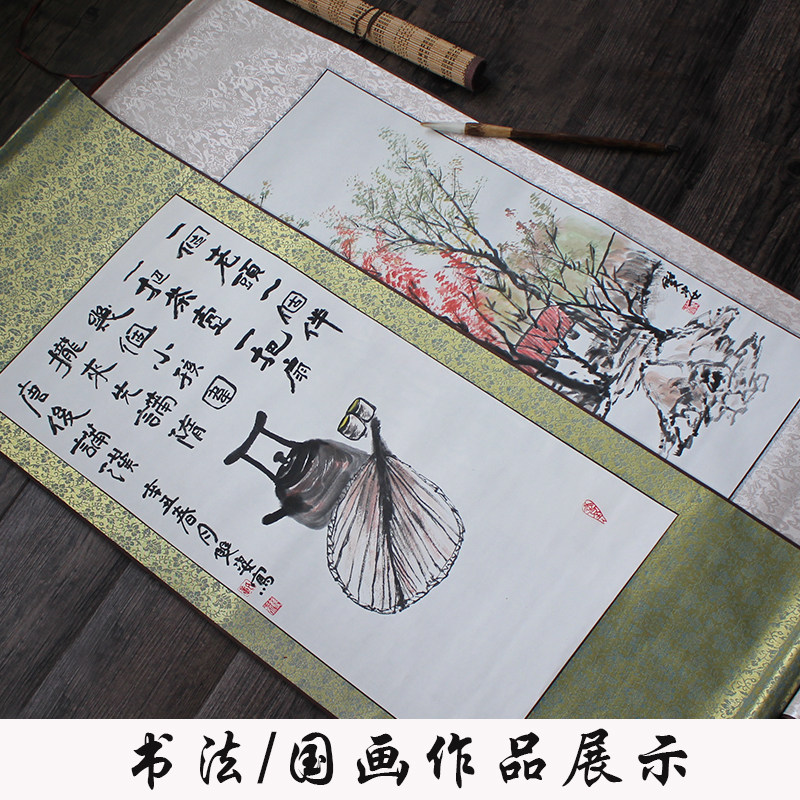 一個老頭一個伴
一把茶壺一把扇
幾個小孩圍
攏來先講隋
唐後講漢 辛丑春月雙姿寫
书法/国画作品展示